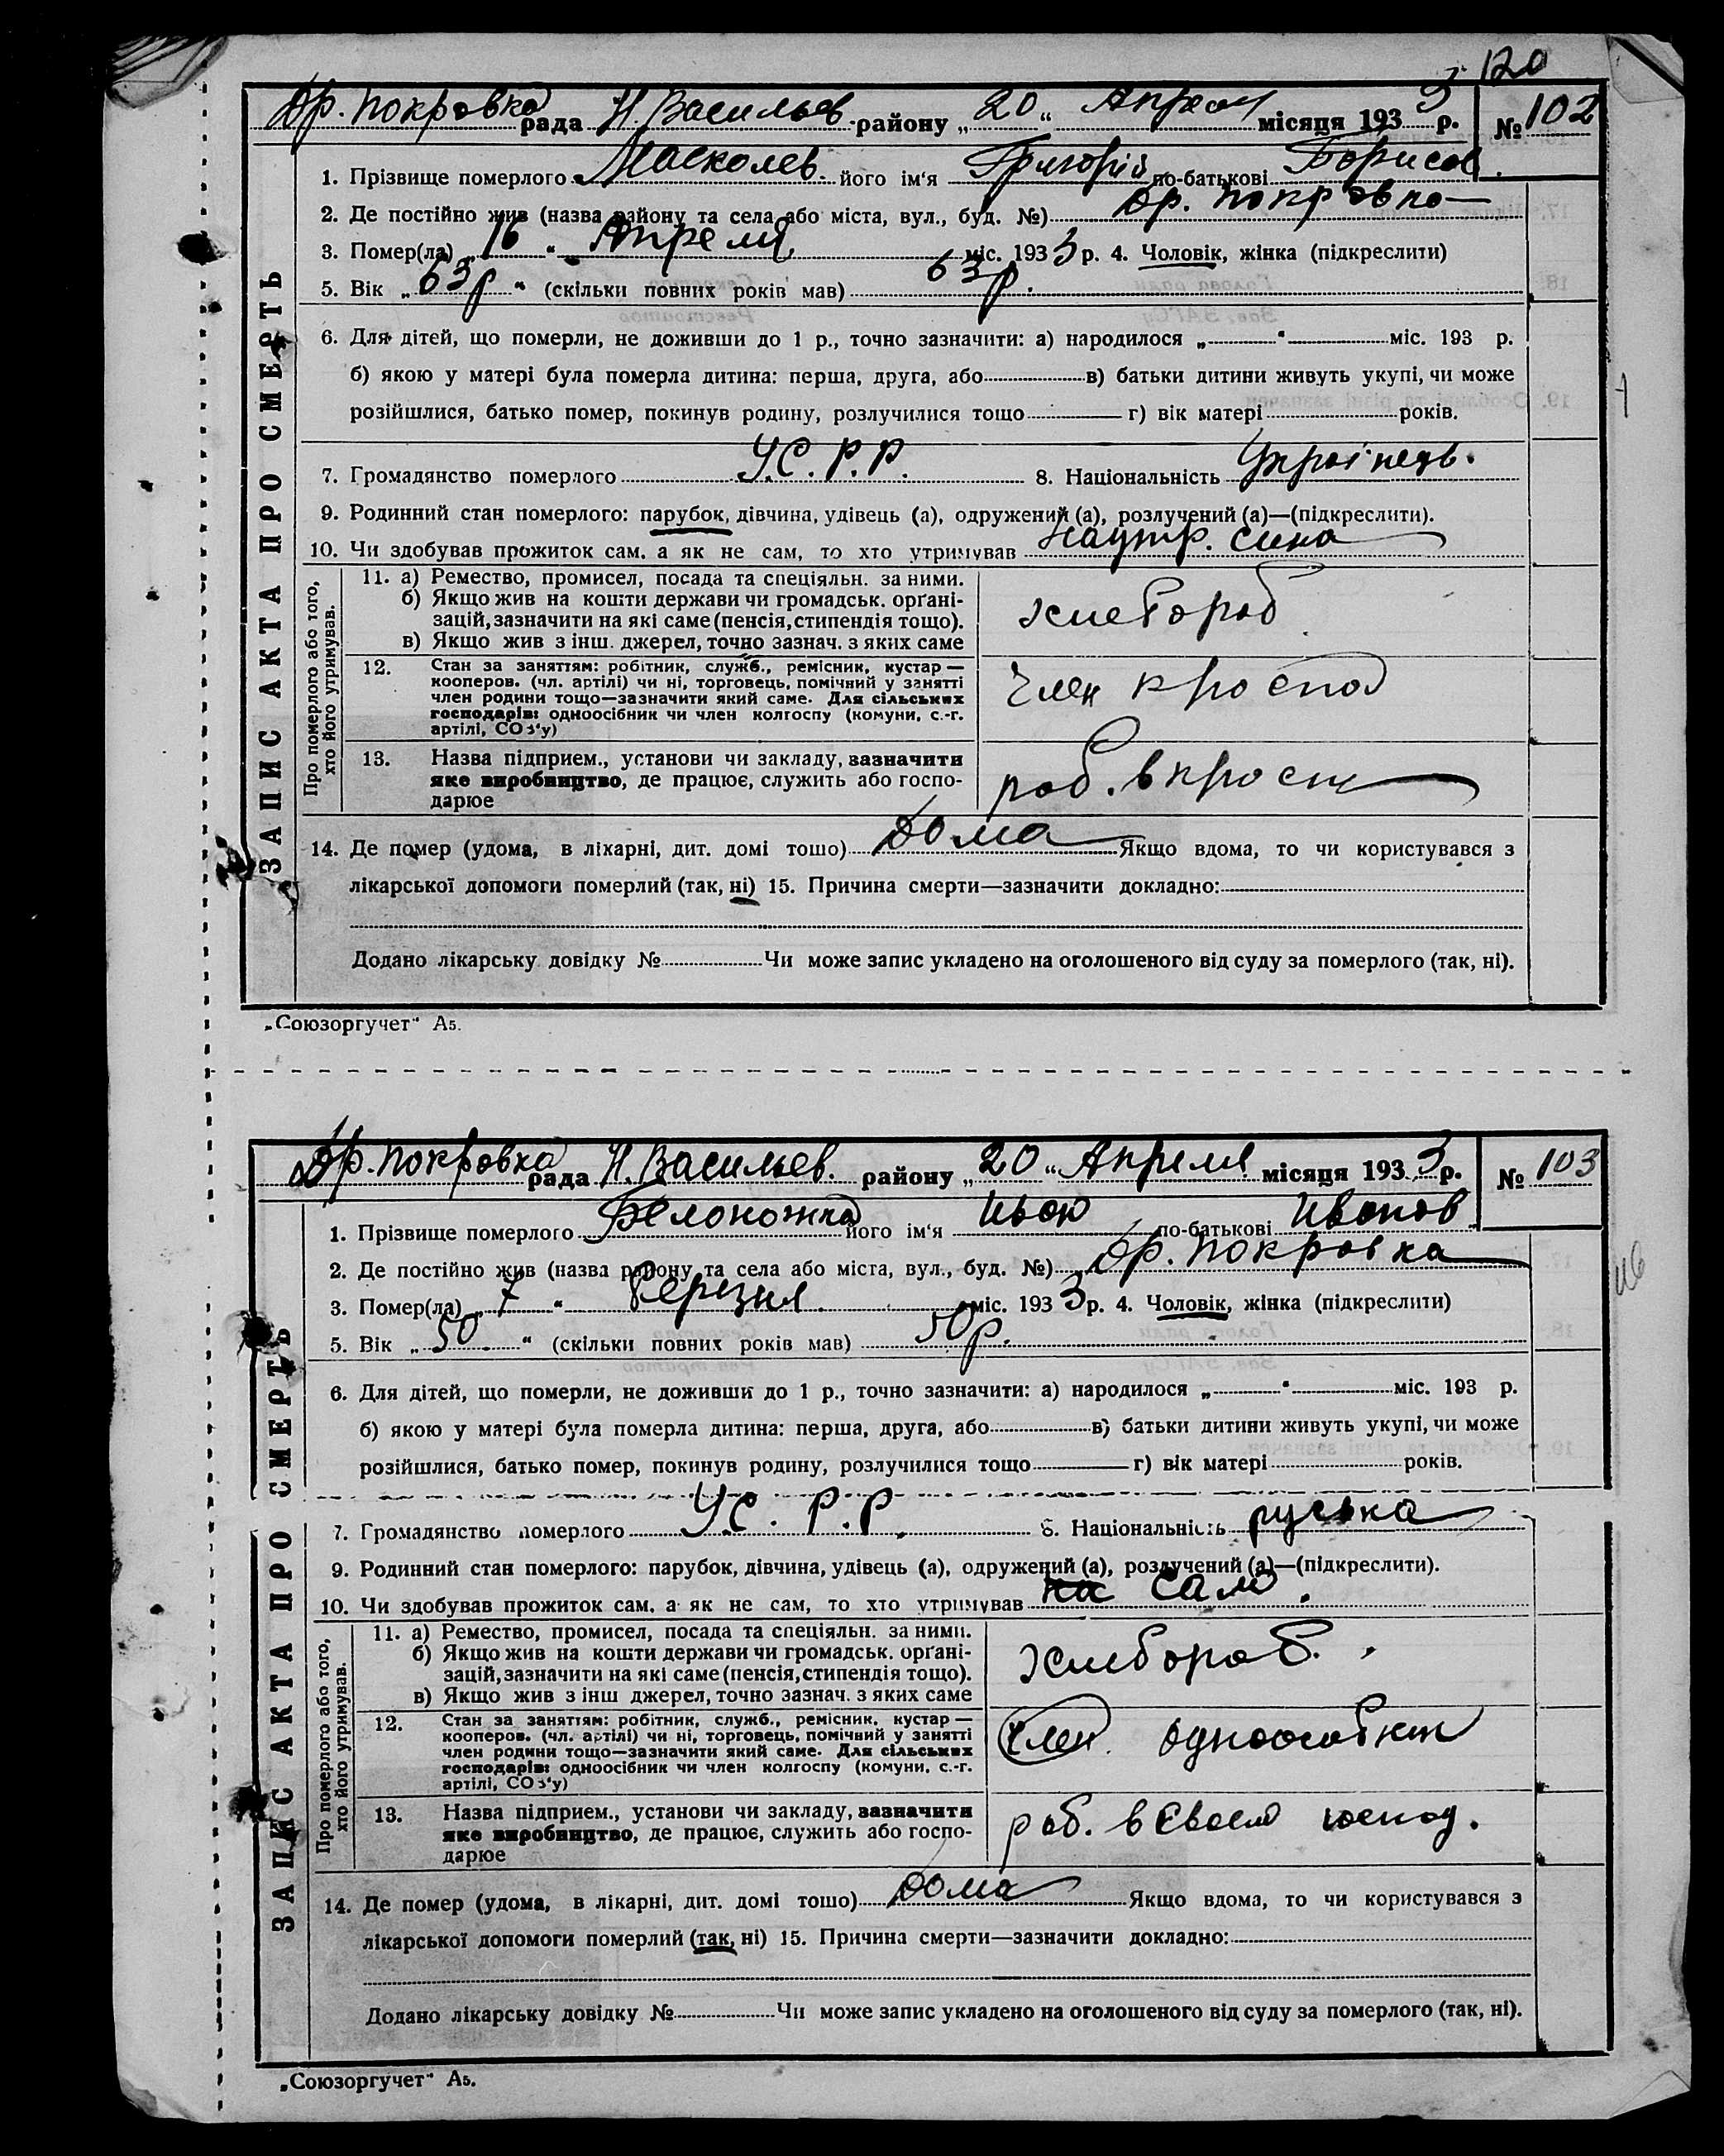 120
Др. Покровка рада Н. Васильев. району „ 20 “ Апреля місяця 193 3 р. № 102
1. Прізвище померлого Масколев. його ім‘я Григорій по-батькові Борисов
2. Де постійно жив (назва району та села або міста, вул., буд. №) Др. Покровка
3. Помер(ла) „ 16 “ Апреля міс. 193 3 р. 4. Чоловік, жінка (підкреслити)
5. Вік „ 63 р “ (скільки повних років мав) 63 р.
6. Для дітей, що померли, не доживши до 1 р., точно зазначити: а) народилося „ “ міс. 193 р.
б) якою у матері була померла дитина: перша, друга, або в) батьки дитини живуть укупі, чи може
розійшлися, батько помер, покинув родину, розлучилися тощо г) вік матері років.
7. Громадянство померлого У.С.Р.Р. 8. Національність Україпець.
9. Родинний стан померлого: парубок, дівчина, удівець (а), одружений (а), розлучений (а)—(підкреслити).
10. Чи здобував прожиток сам, а як не сам, то хто утримував Наутр. сина
ЗАПИС АКТА ПРО СМЕРТЬ
Про померлого або того,
хто його утримував.
11. а) Ремество, промисел, посада та спеціяльн. за ними.
б) Якщо жив на кошти держави чи громадськ. орґані-
зацій, зазначити на які саме (пенсія, стипендія тощо).
в) Якщо жив з інш. джерел, точно зазнач. з яких саме
хлебороб
12. Стан за заняттям: робітник, служб., ремісник, кустар —
кооперов. (чл. артілі) чи ні, торговець, помічний у занятті
член родини тощо—зазначити який саме. Для сільських
господарів: одноосібник чи член колгоспу (комуни, с.-г.
артілі, СОЗ‘у)
член
13. Назва підприєм., установи чи закладу, зазначити
яке виробництво, де працює, служить або госпо-
дарює
роб. в
14. Де помер (удома, в лікарні, дит. домі тощо) Дома Якщо вдома, то чи користувався з
лікарської допомоги померлий (так, ні) 15. Причина смерти—зазначити докладно:
Додано лікарську довідку № Чи може запис укладено на оголошеного від суду за померлого (так, ні).
„Союзоргучет“ А5.
Др. Покровка рада Н. Васильев. району „ 20 “ Апреля місяця 193 3 р. № 103
1. Прізвище померлого Белоножка його ім‘я Ивон по-батькові Иванов
2. Де постійно жив (назва району та села або міста, вул., буд. №) Др. Покровка
3. Помер(ла) „ 7 “ Березня міс. 193 3 р. 4. Чоловік, жінка (підкреслити)
5. Вік „ 50 “ (скільки повних років мав) 50 р.
6. Для дітей, що померли, не доживши до 1 р., точно зазначити: а) народилося „ “ міс. 193 р.
б) якою у матері була померла дитина: перша, друга, або в) батьки дитини живуть укупі, чи може
розійшлися, батько помер, покинув родину, розлучилися тощо г) вік матері років.
7. Громадянство померлого У.С.Р.Р. 8. Національність руська
9. Родинний стан померлого: парубок, дівчина, удівець (а), одружений (а), розлучений (а)—(підкреслити).
10. Чи здобував прожиток сам, а як не сам, то хто утримував на сам.
ЗАПИС АКТА ПРО СМЕРТЬ
Про померлого або того,
хто його утримував.
11. а) Ремество, промисел, посада та спеціяльн. за ними.
б) Якщо жив на кошти держави чи громадськ. орґані-
зацій, зазначити на які саме (пенсія, стипендія тощо).
в) Якщо жив з інш джерел, точно зазнач. з яких саме
хлебороб.
12. Стан за заняттям: робітник, служб., ремісник, кустар —
кооперов. (чл. артілі) чи ні, торговець, помічний у занятті
член родини тощо—зазначити який саме. Для сільських
господарів: одноосібник чи член колгоспу (комуни, с.-г.
артілі, СОЗ‘у)
член. одноособник
13. Назва підприєм., установи чи закладу, зазначити
яке виробництво, де працює, служить або госпо-
дарює
роб. в своем господ.
14. Де помер (удома, в лікарні, дит. домі тощо) Дома Якщо вдома, то чи користувався з
лікарської допомоги померлий (так, ні) 15. Причина смерти—зазначити докладно:
Додано лікарську довідку № Чи може запис укладено на оголошеного від суду за померлого (так, ні).
„Союзоргучет“ А5.